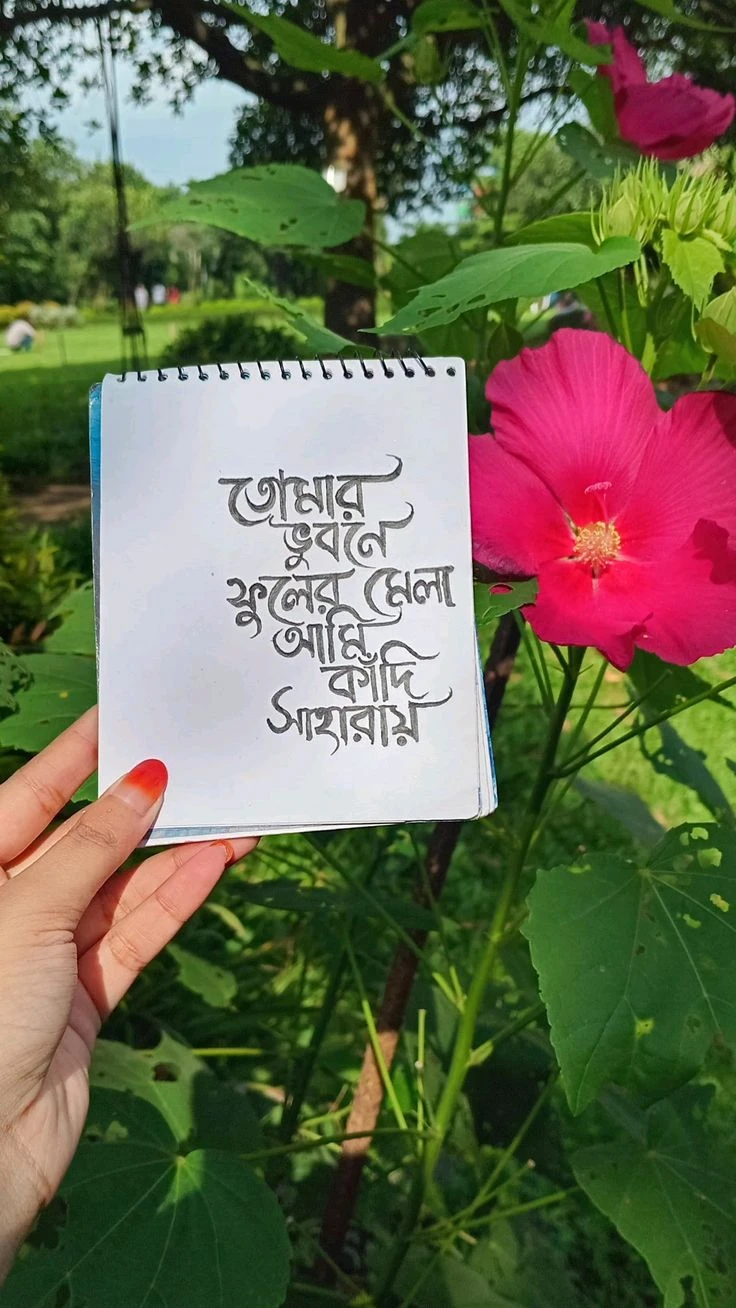 তোমার
ভুবনে
ফুলের মেলা
আমি
কাঁদি
সাহারায়